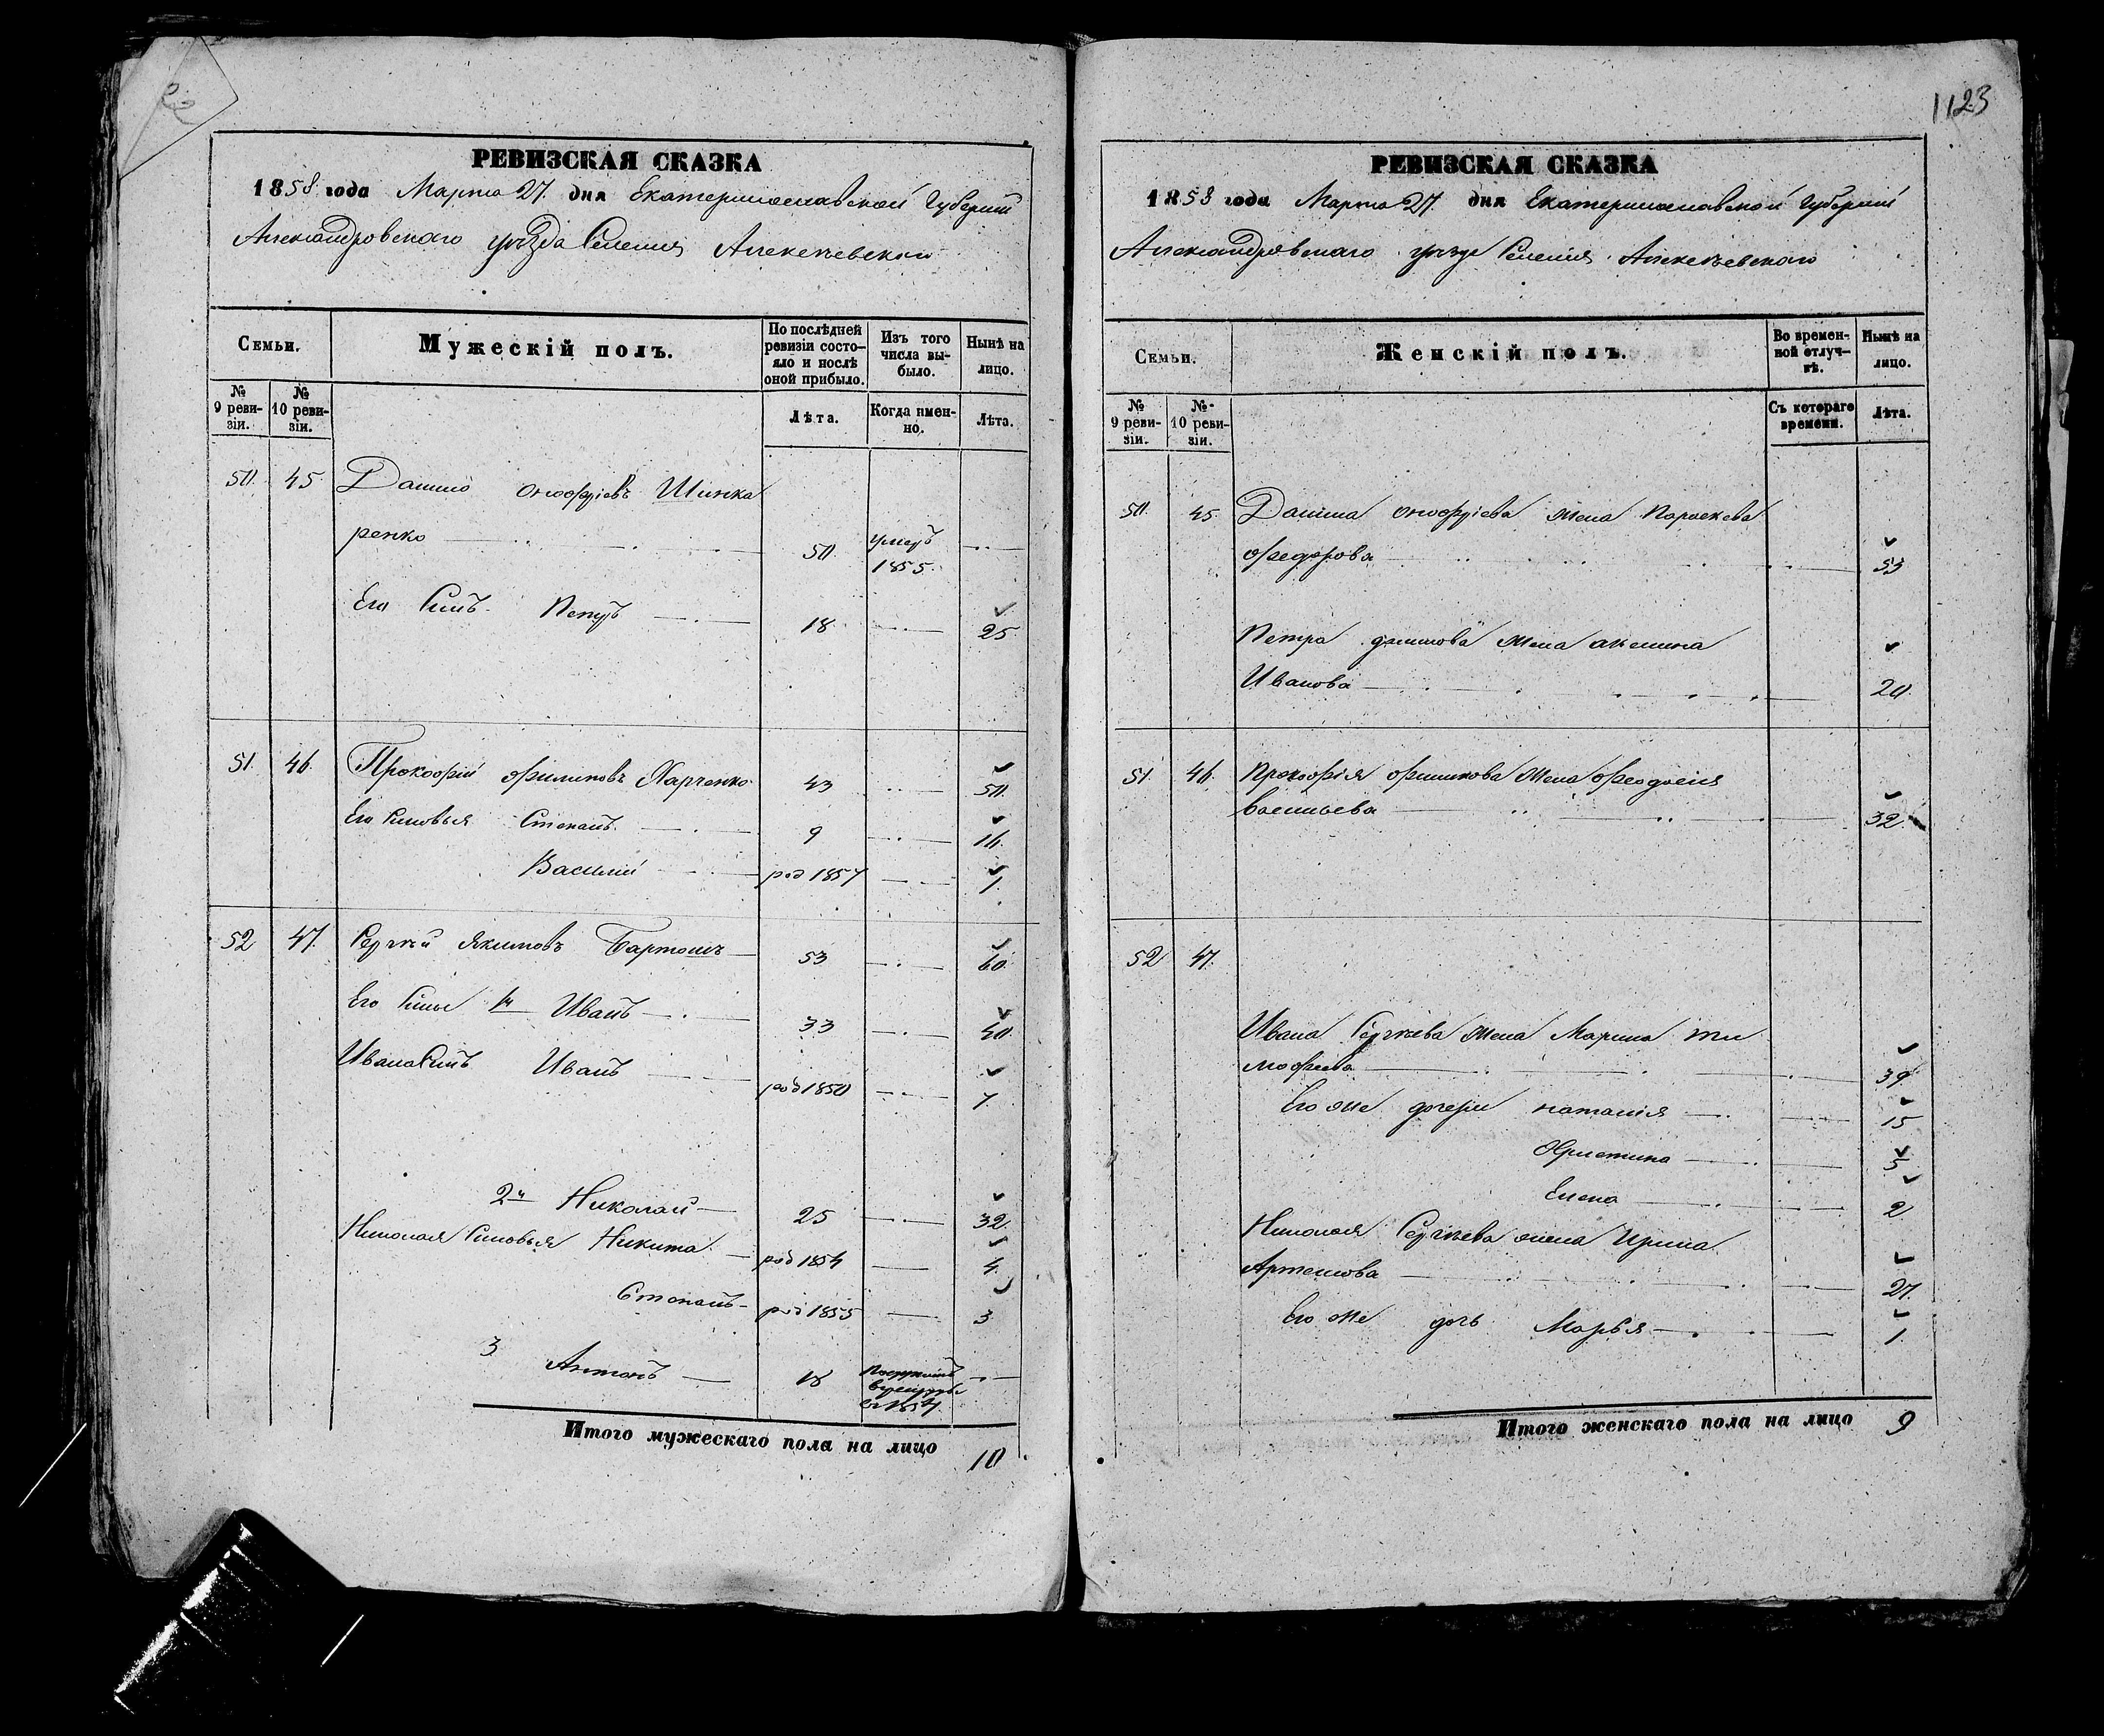 РЕВИЗСКАЯ СКАЗКА
1858 года Марта 27. дня Екатеринославской Губерніи
Александровского уѣзда Селенія Алексѣевского
Семьи.
Мужескій полъ.
По послѣдней ревизіи состояло и послѣ оной прибыло.
Изъ того числа выбыло.
Нынѣ на лицо.
№ 9 ревизіи.
№ 10 ревизіи.
Лѣта.
Когда имен-но.
Лѣта.
50. 45 Данило Онофріевъ Шинка
ренко 50 умеръ 1855.
Его Сынъ Петръ 18 25
51. 46. Прокофій Филиповъ Харченко 43 50.
Его Сыновья Степанъ 9 16.
Василій род 1857 1.
52 47. Сергѣй Якимовъ Бартошъ 53 60.
Его Сыны 1й Иванъ 33 40.
Ивана Сынъ Иванъ род 1850 7.
2й Николай 25 32.
Николая Сыновья Никита род 1854 4.
Степанъ род 1855 3
3 Антонъ 18
Итого мужескаго пола на лицо 10
1123
РЕВИЗСКАЯ СКАЗКА
1858 года Марта 27. дня Екатеринославской Губерніи
Александровского уѣзда Селенія Алексѣевского
Семьи.
Женскій полъ.
Во времен-ной отлуч-кѣ.
Нынѣ на лицо.
№ 9 реви-зіи.
№ 10 реви-зіи.
Съ котораго времени.
Лѣта.
50. 45. Данила Онофріева жена Параскева
Федорова 53
Петра Данилова жена Акелина
Иванова 20.
51. 46. Прокофія Филипова жена Феодосія
Васильева 32.
52 47.
Ивана Сергѣева жена Марина Ти
мофеева 39
Его же дочери Наталія 15
Христина 5
Елена 2
Николая Сергѣева жена Ирина
Артемова 27.
Его же дочь Марья 1.
Итого женскаго пола на лицо 9